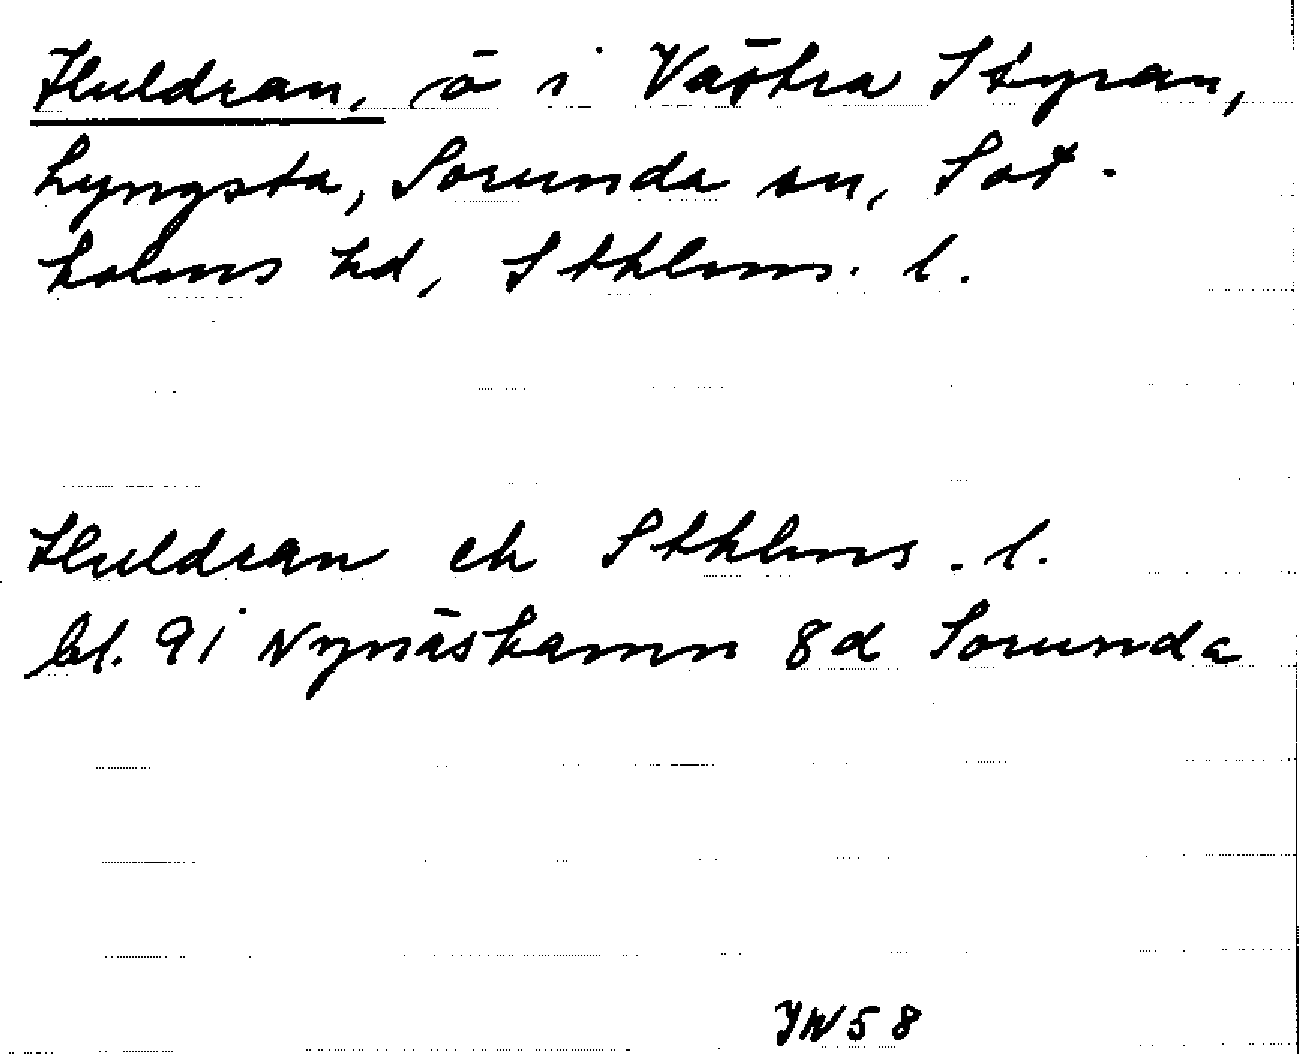 Huldran, ö i Västra Styran,
Lyngsta, Sorunda sn, Sot-
holms hd, Sthlms. l.
Huldran ek Sthlms. l.
bl. 91 Nynäshamn 8d Sorunda
YN58